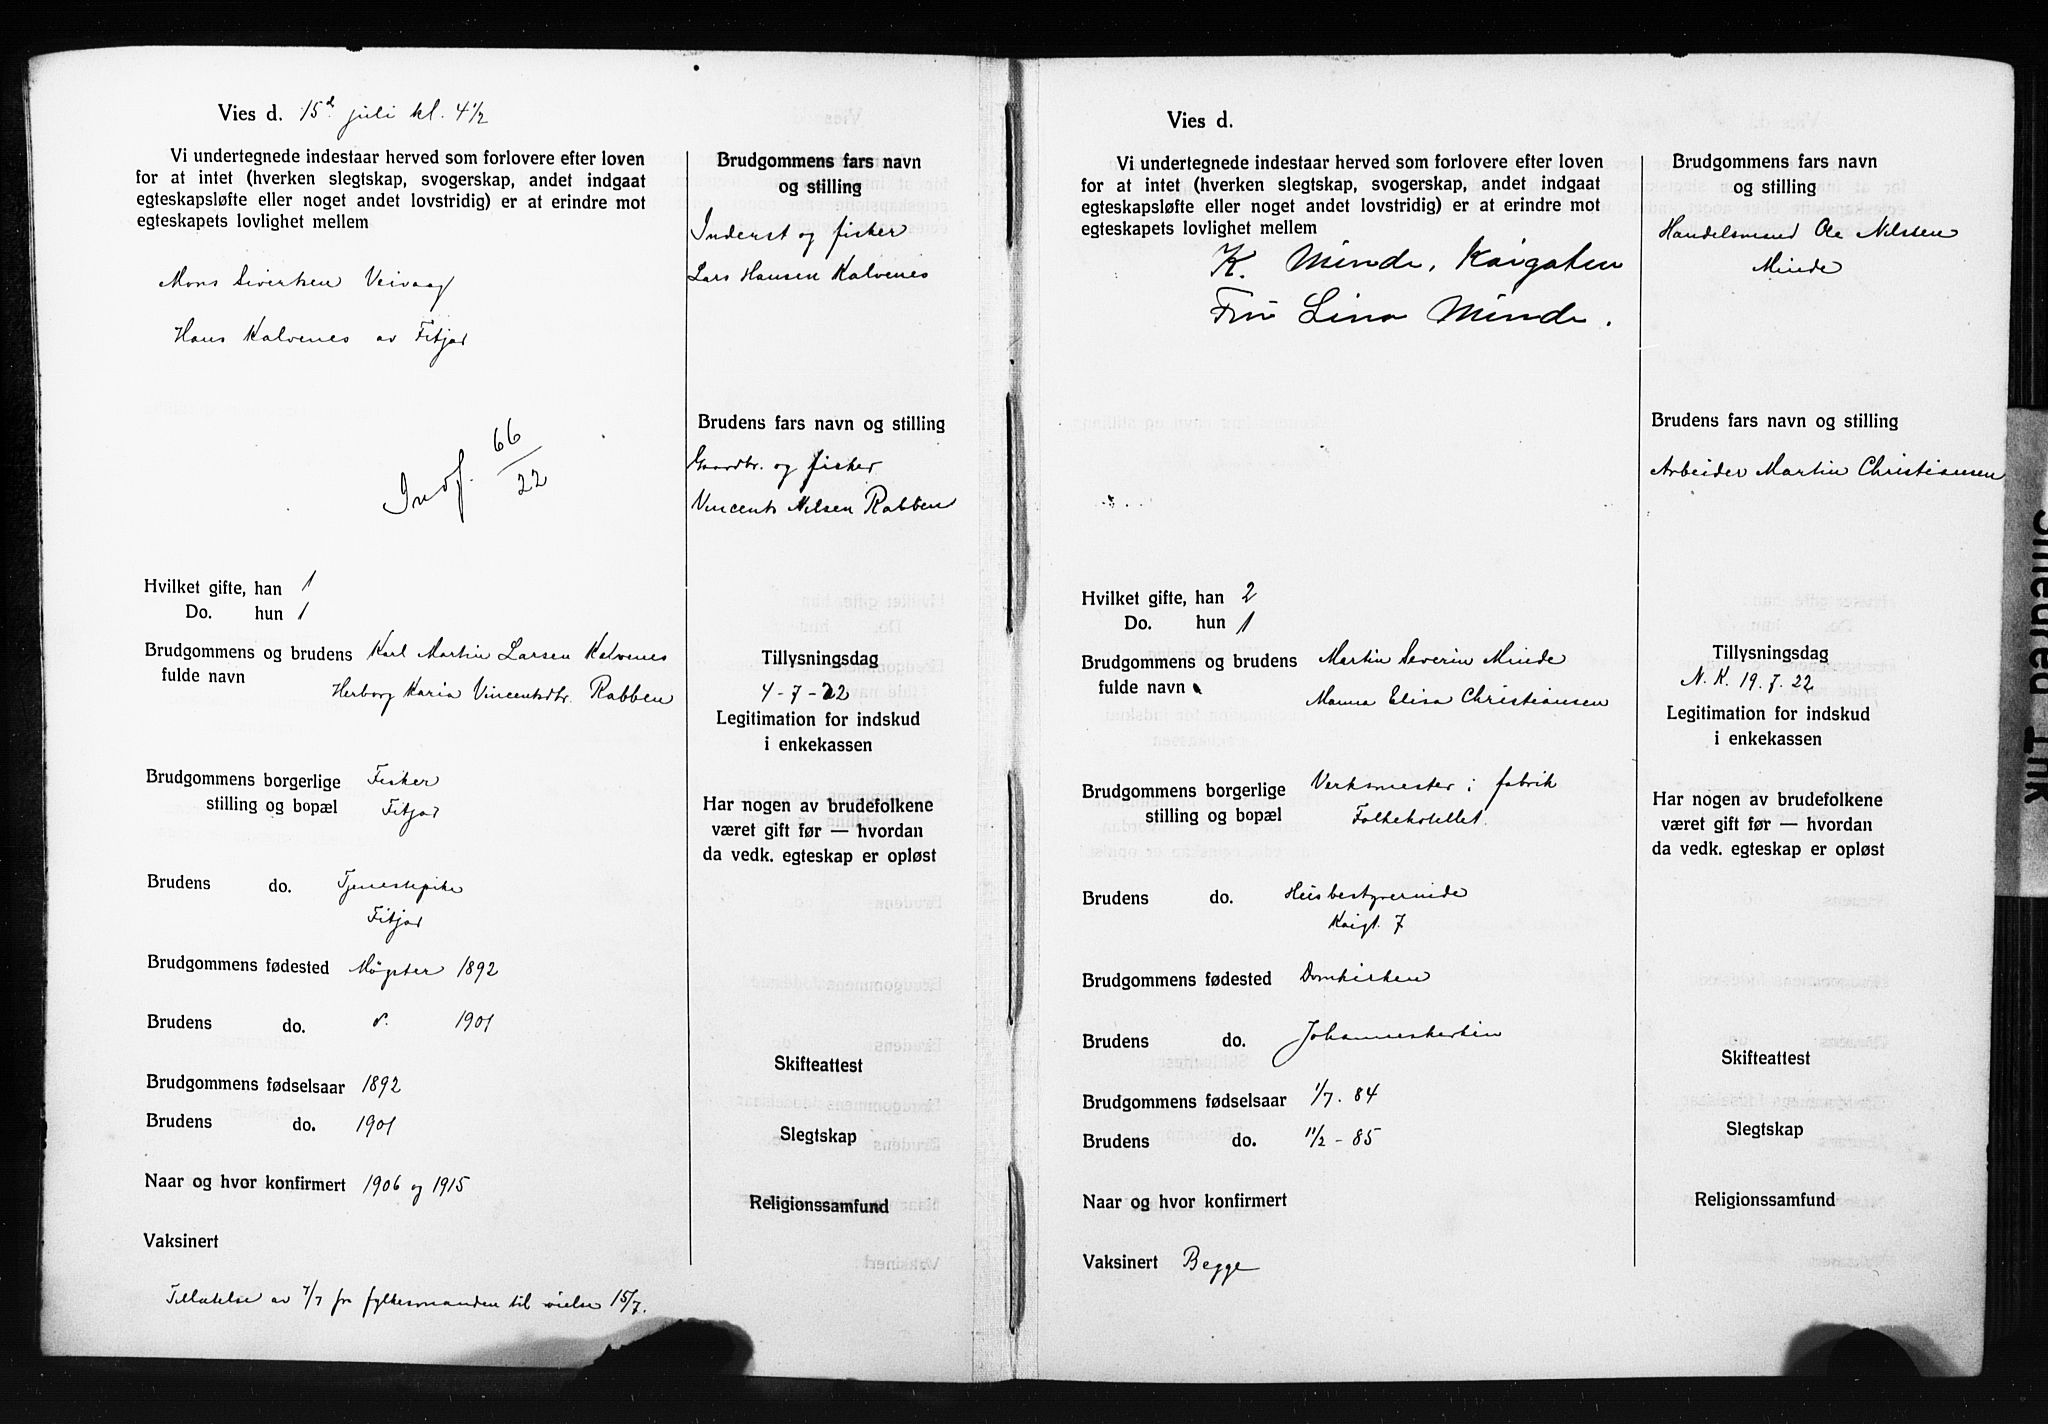 Vies d. 15d juli kl. 4 1/2
Vi undertegnede indestaar herved som forlovere efter loven
for at intet (hverken slegtskap, svogerskap, andet indgaat
egteskapsløfte eller noget andet lovstridig) er at erindre mot
egteskapets lovlighet mellem
Mons Siversen Veivaag
Hans Kalvenes av Fitjar
Indf. 66/22
Brudgommens fars navn
og stilling
Inderst og fisker
Lars Hansen Kalvenes
Brudens fars navn og stilling
Gaardbr. og fisker
Vincents Nilsen Rabben
Hvilket gifte, han 1
Do. hun 1
Brudgommens og brudens Karl Martin Larsen Kalvenes
fulde navn Herborg Karia Vincentsdtr. Rabben
Brudgommens borgerlige Fisker
stilling og bopæl Fitjar
Brudens do. Tjenestepike
Fitjar
Brudgommens fødested Møgster 1892
Brudens do. d. 1901
Brudgommens fødselsaar 1892
Brudens do. 1901
Naar og hvor konfirmert 1906 og 1915
Vaksinert
Tillatelse av 7/7 fra fylkesmanden til vielse 15/7.
Tillysningsdag
4-7-22
Legitimation for indskud
i enkekassen
Har nogen av brudefolkene
været gift før — hvordan
da vedk. egteskap er opløst
Skifteattest
Slegtskap
Religionssamfund
Vies d.
Vi undertegnede indestaar herved som forlovere efter loven
for at intet (hverken slegtskap, svogerskap, andet indgaat
egteskapsløfte eller noget andet lovstridig) er at erindre mot
egteskapets lovlighet mellem
K. Minde, Kaigaten
Fru Lina Minde.
Brudgommens fars navn
og stilling
Handelsmand Ole Nilssen
Minde
Brudens fars navn og stilling
Arbeider Martin Christiansen
Hvilket gifte, han 2
Do. hun 1
Brudgommens og brudens Martin Severin Minde
fulde navn Manna Elisa Christiansen
Brudgommens borgerlige Verksmester i fabrik
stilling og bopæl Folkehotellet.
Brudens do. Husbestyrerinde
Kaigt. 7
Brudgommens fødested Domkirken
Brudens do. Johanneskerken
Brudgommens fødselsaar 1/7. 84
Brudens do. 11/2 - 85
Naar og hvor konfirmert
Vaksinert Begge
Tillysningsdag
N. K. 19. 7. 22
Legitimation for indskud
i enkekassen
Har nogen av brudefolkene
været gift før — hvordan
da vedk. egteskap er opløst
Skifteattest
Slegtskap
Religionssamfund
Smeared Ink